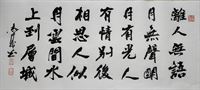 離人無語
月無聲明
月有光人
有情別後
相思人似
月雲間水
上到層城